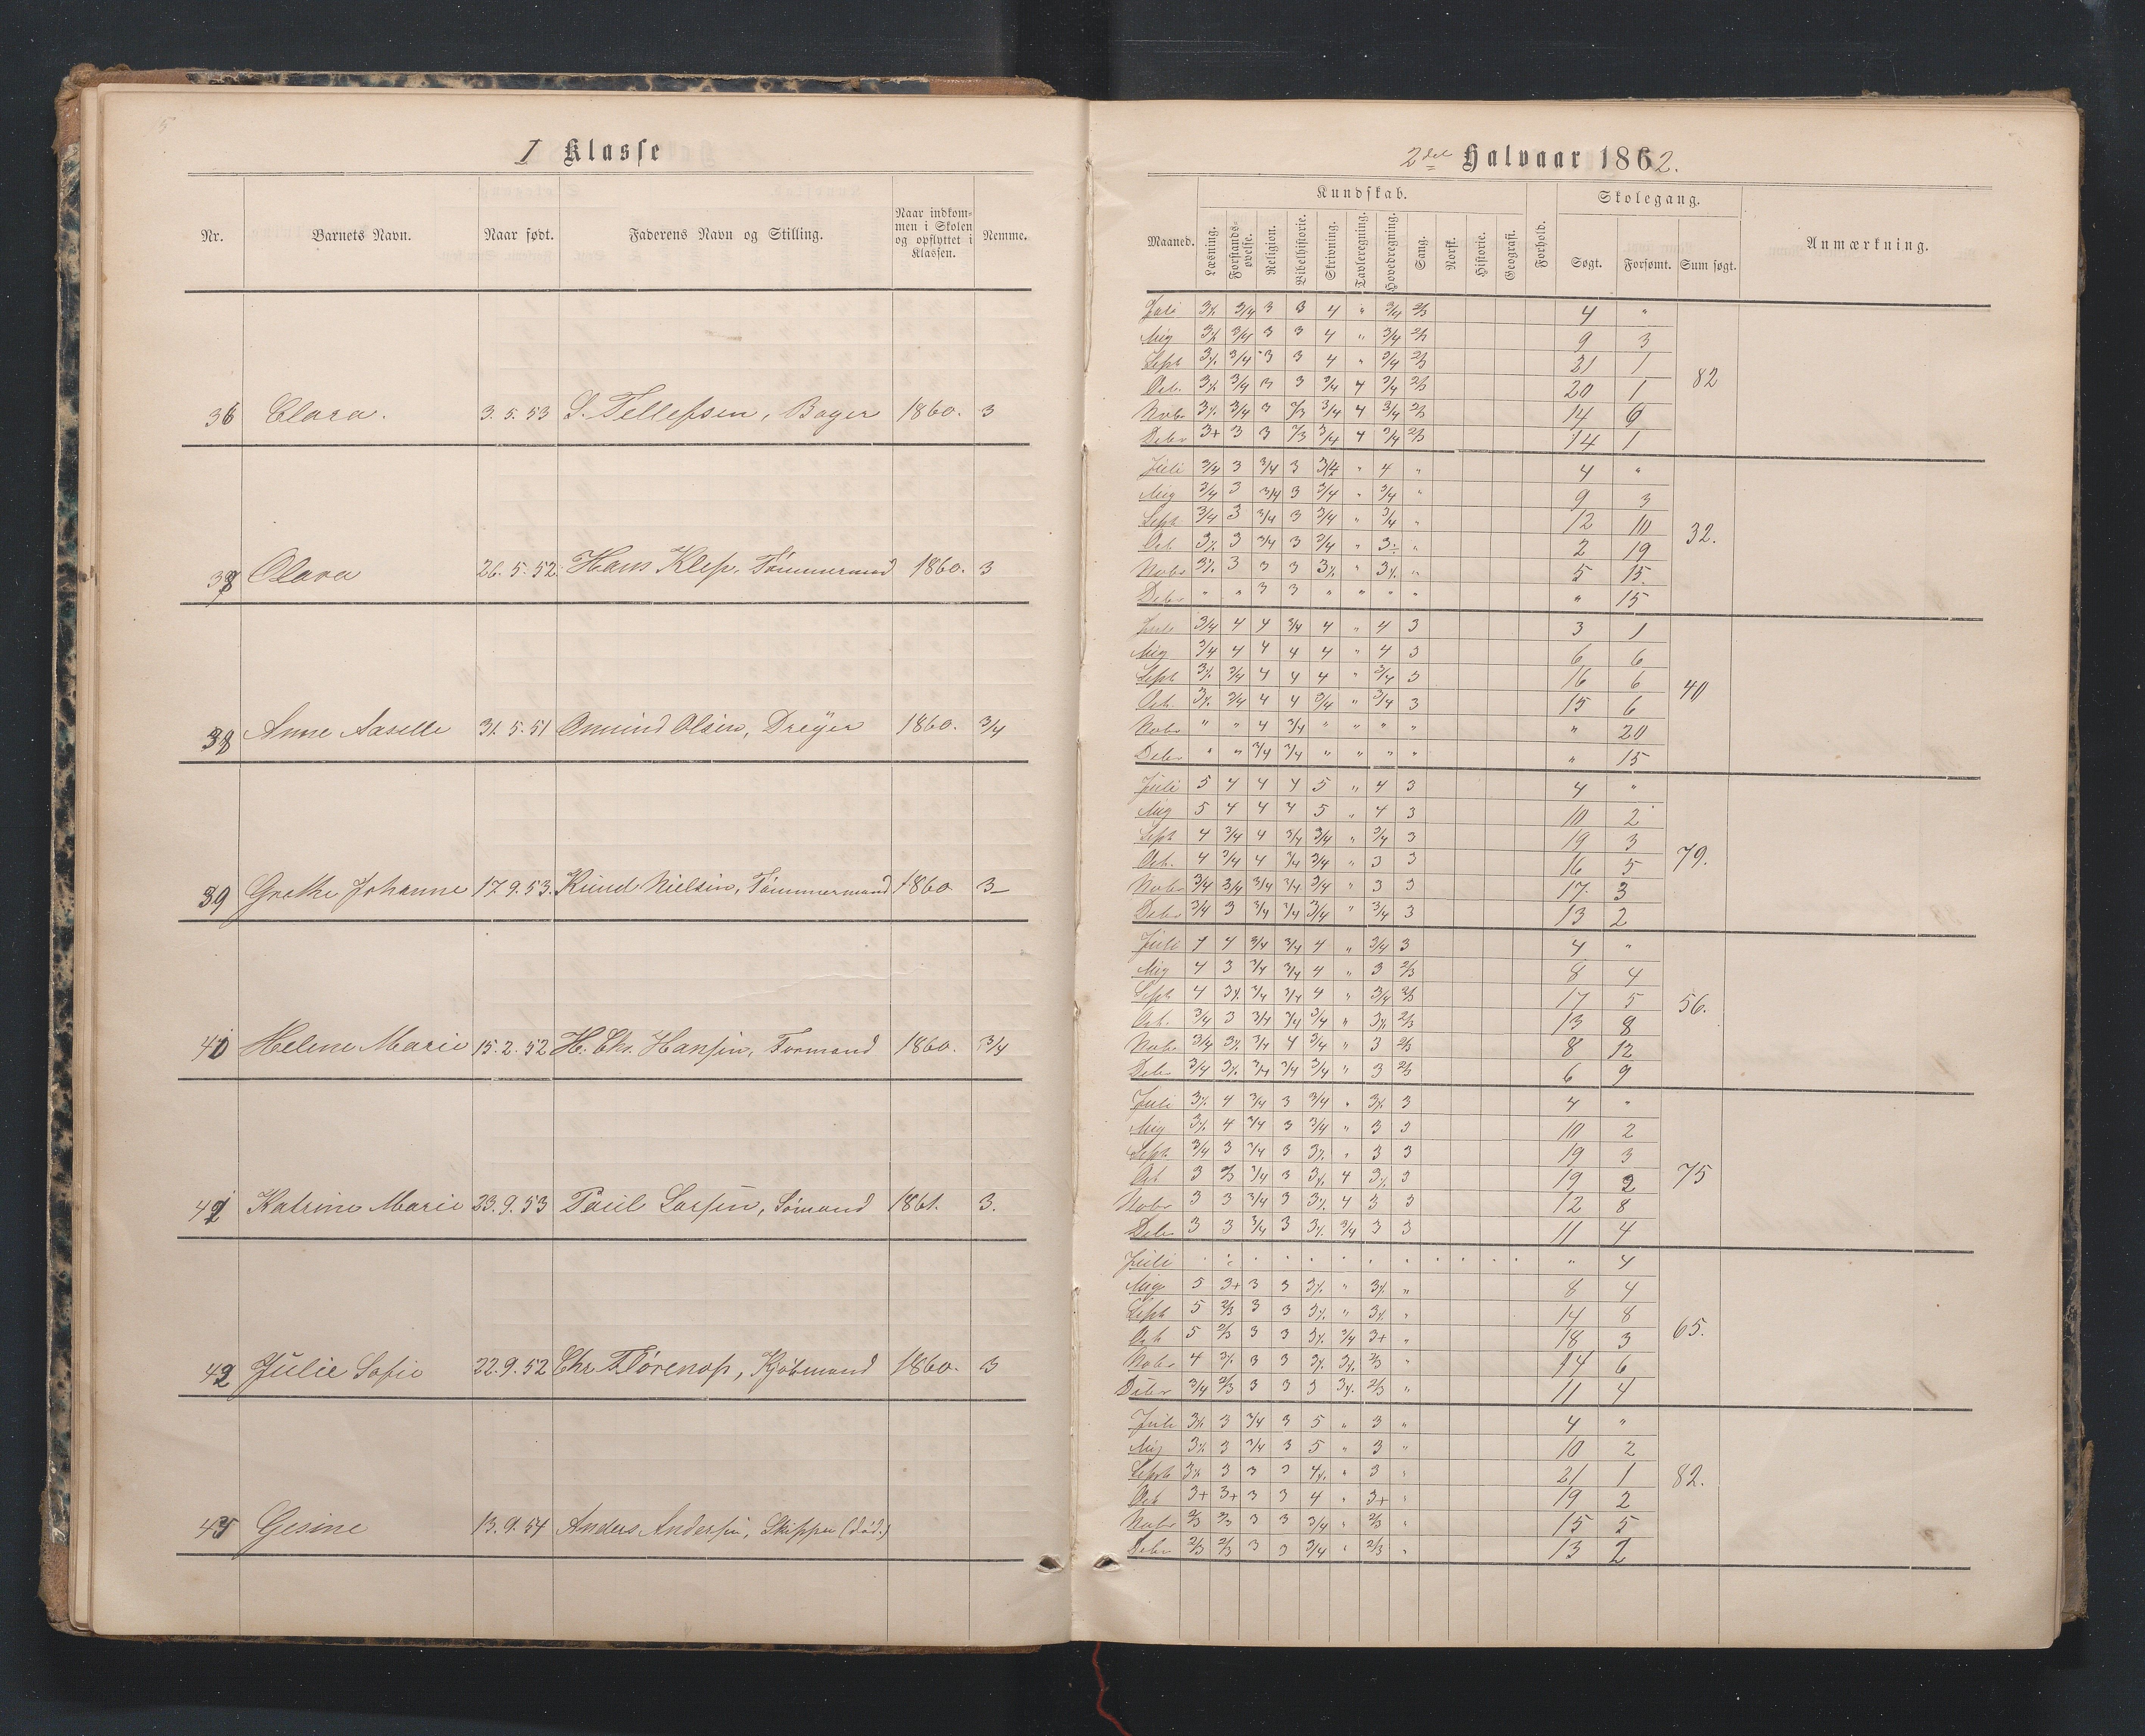 I Klasse
Nr. Barnets Navn. Naar født. Faderens Navn og Stilling. Naar indkommen i Skolen og opflyttet i Klassen. Nemme.
36 Clara. 3. 5. 53 S. Tellefsen, Bager 1860. 3
Olava 26. 5. 52. Hans Klep, Tømmermand 1860. 3
38 Anne Aaselle 31. 5. 51 Omund Olsen, Dreyer 1860. 3/4
39 Grethe Johanne 17. 9. 53. Knud Nielsen, Tømmermand 1860 3
40 Helene Marie 15. 2. 52 H. Chr. Hansen, Formand 1860. 3/4
Katrine Marie 23. 9. 53 Paul Larsen, Sømand 1861. 3.
42 Julie Sofie 22. 9. 52 Chr. Kjøbmand 1860. 3
Gesine 13. 9. 54 Anders Andersen, Skipper (død.)
2det Halvaar 1862.
Maaned. Kundskab. Forhold. Skolegang. Anmærkning.
Læsning. Forstandsøvelse. Religion. Bibelhistorie. Skrivning. Tavleregning. Hovedregning. Sang. Norsk. Historie. Geografi. Søgt. Forsømt. Sum søgt.
Juli 3/4 3 3 4 " 3/4 2/3 4 "
Aug 3/4 3 3 4 " 3/4 2/3 9 3
Sept 3/4 3 3 4 " 3/4 2/3 21 1
Oct. 3/4 3 3 3/4 4 3/4 2/3 20 1
82
Novbr 3/4 3 2/3 3/4 4 3/4 2/3 14 6
Debr 3+ 3 3 2/3 3/4 4 3/4 2/3 14 1
Juli 3/4 3 3/4 3 3/4 " 4 " 4 "
Aug 3/4 3 3/4 3 3/4 " 3/4 " 9 3
Sept 3/4 3 3/4 3 3/4 " 3/4 " 12 10
32.
Oct 3 3/4 3 3/4 " " 2 19
Novbr 3 3 3 " " 5 15
Debr " " 3 3 " " " " " 15
Juli 3/4 4 4 3/4 4 " 4 3 3 1
Aug 3/4 4 4 4 4 " 4 3 6 6
Sept 3/4 4 4 4 " 3/4 3 16 6
40
Oct. 3/4 4 4 3/4 " 3/4 3 15 6
Novbr " " 4 3/4 " " " " " 20
Debr " " 3/4 3/4 " " " " " 15
Juli 5 4 4 4 5 " 4 3 4 "
Aug 5 4 4 4 5 " 4 3 10 2
Sept 4 3/4 4 3/4 3/4 " 3/4 3 19 3
79.
Oct. 4 3/4 4 3/4 3/4 " 3 3 16 5
Novbr 3/4 3/4 3/4 3/4 3/4 " 3 3 17 3
Debr 3/4 3 3/4 3/4 3/4 " 3/4 3 13 2
Juli 4 4 3/4 3/4 4 " 3/4 3 4 "
Aug 4 3 3/4 3/4 4 " 3 2/3 8 4
Sept 4 3/4 3/4 4 " 3/4 2/3 17 5
56.
Oct. 3/4 3 3/4 3/4 3/4 " 2/3 13 8
Novbr 3/4 3/4 4 3/4 " 3 2/3 8 12
Debr 3/4 3/4 3/4 3/4 " 3 2/3 6 9
Juli 4 3/4 3 3/4 " 3 4 "
Aug 4 3/4 3 3/4 " 3 3 10 2
Sept. 3/4 3 3/4 3 " 3 3 19 3
75
Oct 3 2/3 3/4 3 4 3 19 2
Novbr 3 3 3/4 3 4 3 3 12 8
Debr 3 3 3/4 3 3/4 3 3 11 4
Juli " 4
Aug 5 3+ 3 3 " " 8 4
Sept 5 2/3 3 3 " " 14 8
65.
Oct 5 2/3 3 3 3/4 3+ " 18 3
Novbr 4 3 3 2/3 " 14 6
Debr 3/4 2/3 3 3 3 2/3 " 11 4
Juli 3 3/4 3 5 " 3 " 4 "
Aug 3 3/4 3 5 " 3 " 10 2
Sept 3 3 3 " 3 " 21 1
82.
Oct 3+ 3+ 3 3 4 " 3+ " 19 2
Novbr 2/3 2/3 3 3 3/4 " 2/3 " 15 5
Debr 2/3 2/3 3 3 3/4 " 2/3 " 13 2